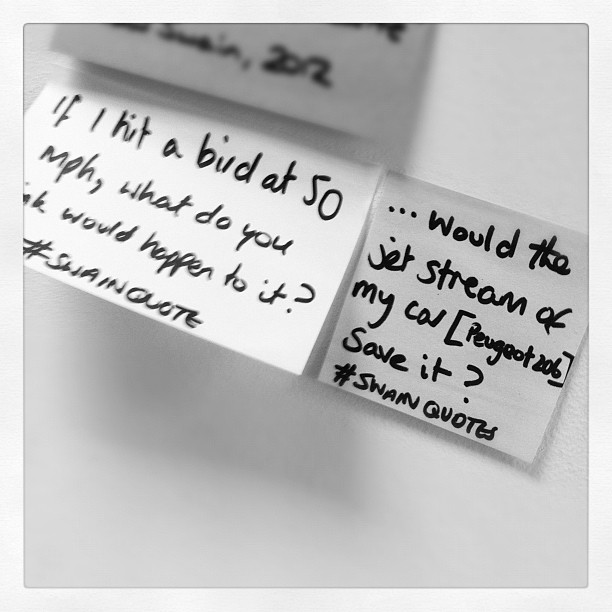 Swain, 2012
If I hit a bird at 50
mph, what do you
would happen to it?
#SWAINQUOTE
... Would the
jet stream of
my car [Peugeot 206]
Save it?
#SWAINQUOTES